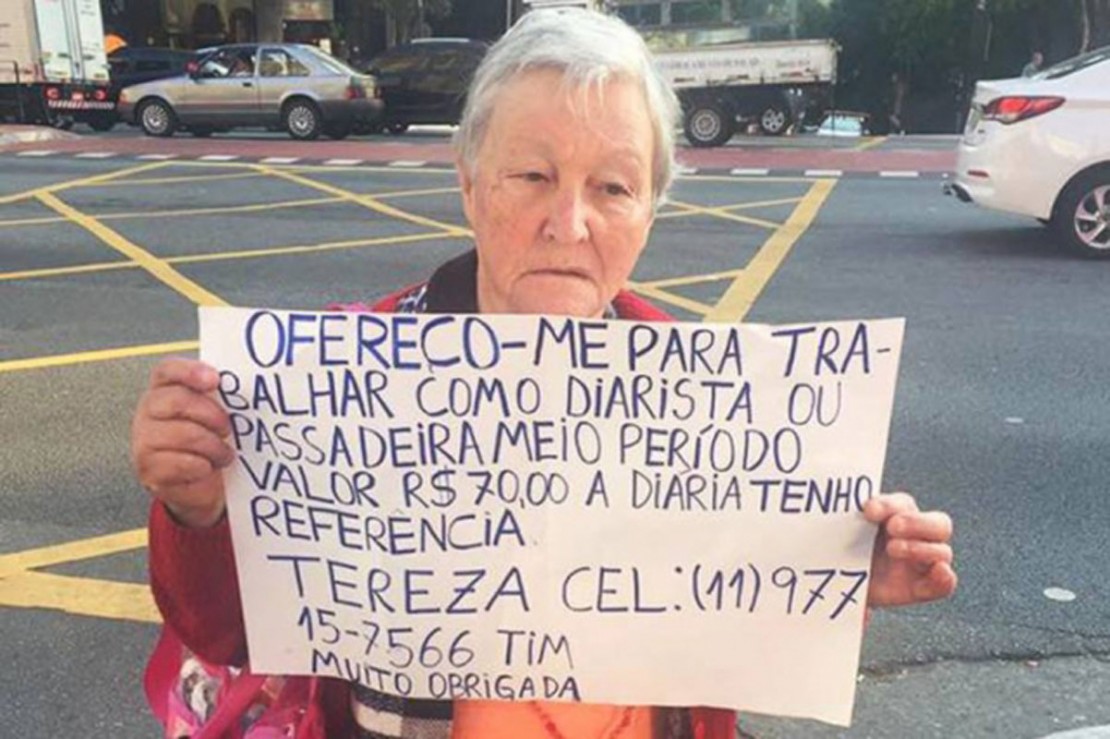 OFEREÇO-ME PARA TRA-
BALHAR COMO DIARISTA OU
PASSADEIRA MEIO PERÍODO
VALOR R$ 70,00 A DIÁRIA TENHO
REFERÊNCIA
TEREZA CEL: (11) 977
15-7566 TIM
MUITO OBRIGADA